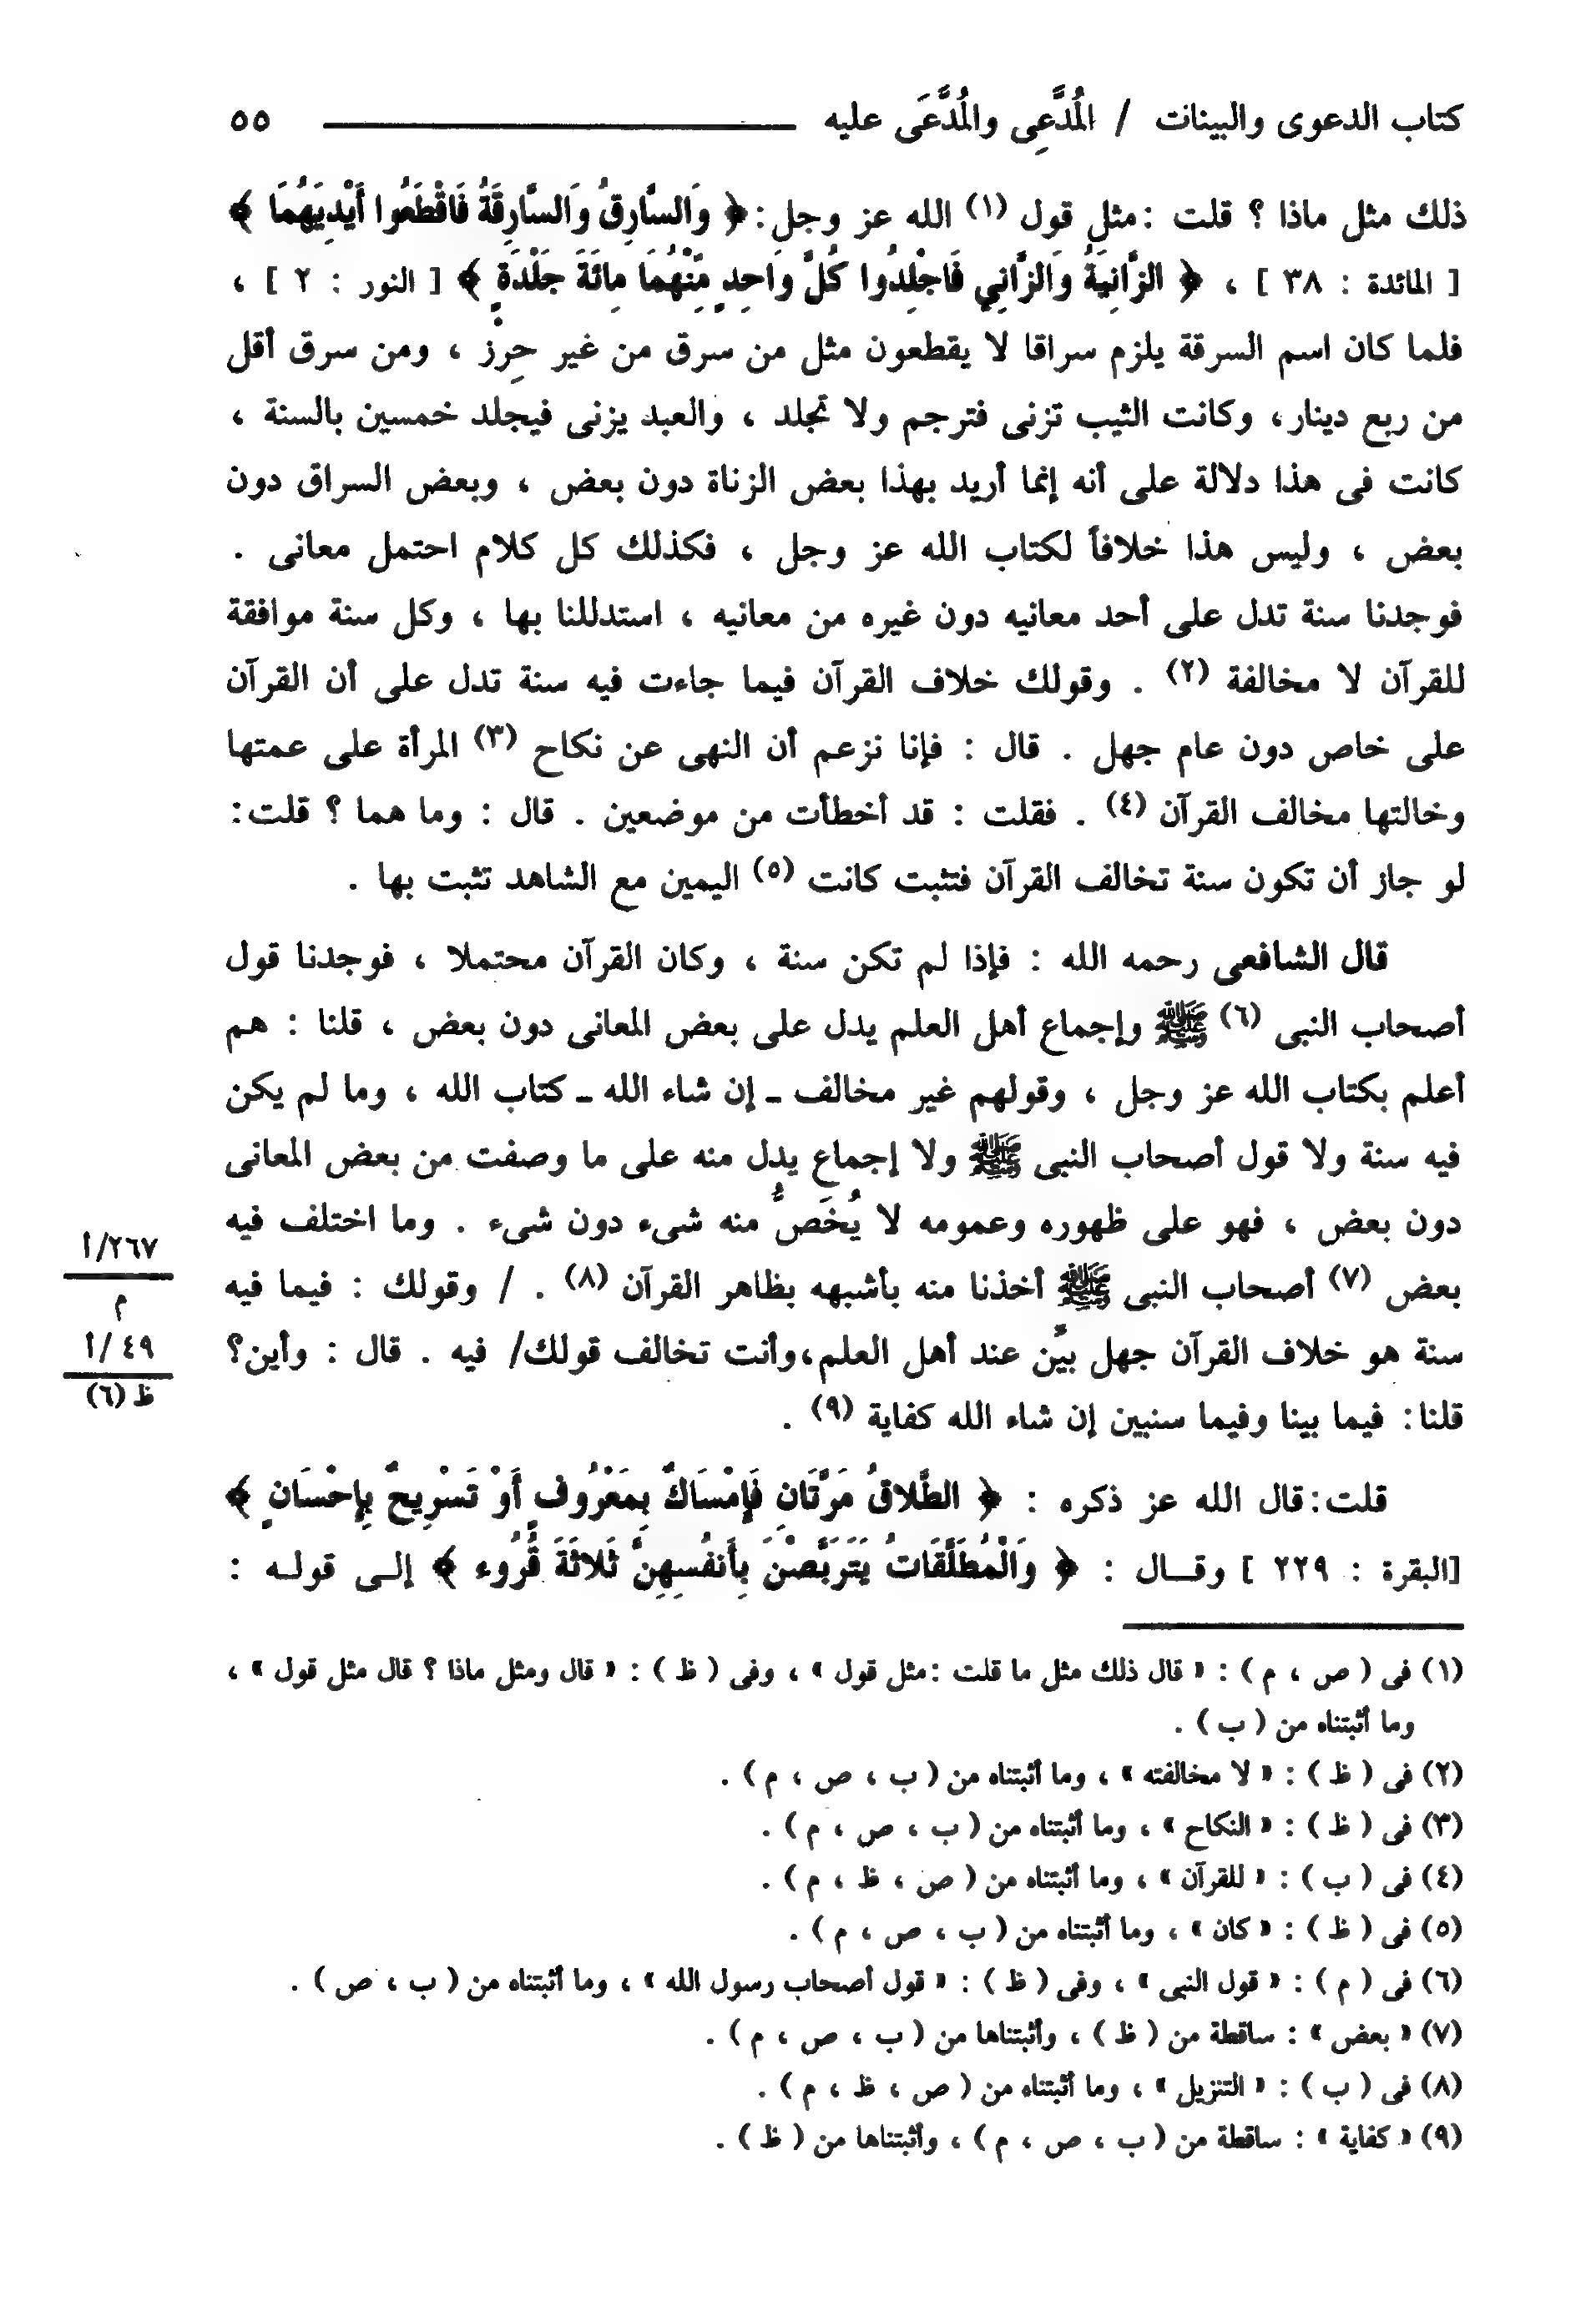 كتاب الدعوى والبينات / المُدَّعِى والمُدَّعَى عليه ٥٥
ذلك مثل ماذا ؟ قلت : مثل قول (١) الله عز وجل : ﴿ وَالسَّارِقُ وَالسَّارِقَةُ فَاقْطَعُوا أَيْدِيَهُمَا ﴾
[ المائدة : ٣٨ ] ، ﴿ الزَّانِيَةُ وَالزَّانِي فَاجْلِدُوا كُلَّ وَاحِدٍ مِّنْهُمَا مِائَةَ جَلْدَةٍ ﴾ [ النور : ٢ ] ،
فلما كان اسم السرقة يلزم سراقا لا يقطعون مثل من سرق من غير حِرز ، ومن سرق أقل
من ربع دينار، وكانت الثيب تزنى فترجم ولا تجلد ، والعبد يزنى فيجلد خمسين بالسنة ،
كانت فى هذا دلالة على أنه إنما أريد بهذا بعض الزناة دون بعض ، وبعض السراق دون
بعض ، وليس هذا خلافاً لكتاب الله عز وجل ، فكذلك كل كلام احتمل معانى .
فوجدنا سنة تدل على أحد معانيه دون غيره من معانيه ، استدللنا بها ، وكل سنة موافقة
للقرآن لا مخالفة (٢) . وقولك خلاف القرآن فيما جاءت فيه سنة تدل على أن القرآن
على خاص دون عام جهل . قال : فإنا نزعم أن النهى عن نكاح (٣) المرأة على عمتها
وخالتها مخالف القرآن (٤) . فقلت : قد أخطأت من موضعين . قال : وما هما ؟ قلت :
لو جاز أن تكون سنة تخالف القرآن فتثبت كانت (٥) اليمين مع الشاهد تثبت بها .
قال الشافعى رحمه الله : فإذا لم تكن سنة ، وكان القرآن محتملا ، فوجدنا قول
أصحاب النبى (٦) ﷺ وإجماع أهل العلم يدل على بعض المعانى دون بعض ، قلنا : هم
أعلم بكتاب الله عز وجل ، وقولهم غير مخالف ـ إن شاء الله ـ كتاب الله ، وما لم يكن
فيه سنة ولا قول أصحاب النبى ﷺ ولا إجماع يدل منه على ما وصفت من بعض المعانى
دون بعض ، فهو على ظهوره وعمومه لا يُخَصُّ منه شىء دون شىء . وما اختلف فيه
بعض (٧) أصحاب النبى ﷺ أخذنا منه بأشبهه بظاهر القرآن (٨) . / وقولك : فيما فيه
سنة هو خلاف القرآن جهل بيِّن عند أهل العلم، وأنت تخالف قولك/ فيه . قال : وأين؟
قلنا : فيما بينا وفيما سنبين إن شاء الله كفاية (٩) .
٢٦٧/أ
م
٤٩ /أ
ظ (٦)
قلت : قال الله عز ذكره : ﴿ الطَّلاقُ مَرَّتَانِ فَإِمْسَاكٌ بِمَعْرُوفٍ أَوْ تَسْرِيحٌ بِإِحْسَانٍ ﴾
[البقرة : ٢٢٩ ] وقـــال : ﴿ وَالْمُطَلَّقَاتُ يَتَرَبَّصْنَ بِأَنفُسِهِنَّ ثَلاثَةَ قُرُوء ﴾ إلـى قولـه :
(١) فى ( ص ، م ) : « قال ذلك مثل ما قلت : مثل قول » ، وفى ( ظ ) : « قال ومثل ماذا ؟ قال مثل قول » ،
وما أثبتناه من ( ب ) .
(٢) فى ( ظ ) : « لا مخالفته » ، وما أثبتناه من ( ب ، ص ، م ) .
(٣) فى ( ظ ) : « النكاح » ، وما أثبتناه من ( ب ، ص ، م ) .
(٤) فى ( ب ) : « للقرآن » ، وما أثبتناه من ( ص ، ظ ، م ) .
(٥) فى ( ظ ) : « كان » ، وما أثبتناه من ( ب ، ص ، م ) .
(٦) فى ( م ) : « قول النبى » ، وفى ( ظ ) : « قول أصحاب رسول الله » ، وما أثبتناه من ( ب ، ص ) .
(٧) « بعض » : ساقطة من ( ظ ) ، وأثبتناها من ( ب ، ص ، م ) .
(٨) فى ( ب ) : « التنزيل » ، وما أثبتناه من ( ص ، ظ ، م ) .
(٩) « كفاية » : ساقطة من ( ب ، ص ، م ) ، وأثبتناها من ( ظ ) .